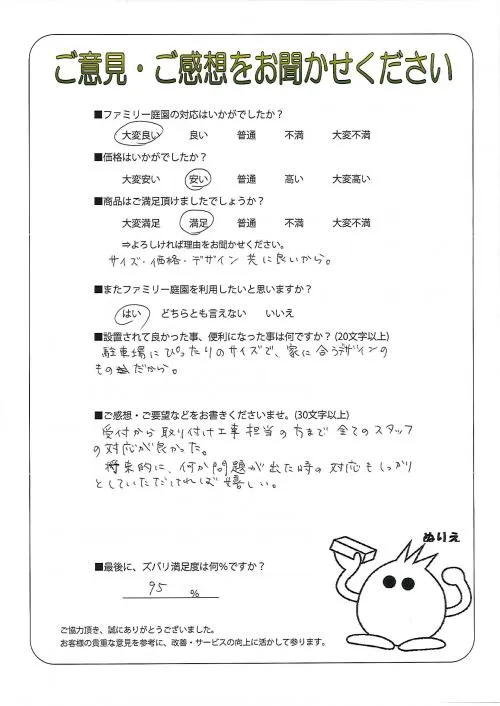 ご意見・ご感想をお聞かせください
■ファミリー庭園の対応はいかがでしたか？
大変良い 良い 普通 不満 大変不満
■価格はいかがでしたか？
大変安い 安い 普通 高い 大変高い
■商品はご満足頂けましたでしょうか？
大変満足 満足 普通 不満 大変不満
⇒よろしければ理由をお聞かせください。
サイズ・価格・デザイン 共に良いから。
■またファミリー庭園を利用したいと思いますか？
はい どちらとも言えない いいえ
■設置されて良かった事、便利になった事は何ですか？(20文字以上)
駐車場にぴったりのサイズで、家に合うデザインの
ものだから。
■ご感想・ご要望などをお書きくださいませ。(30文字以上)
受付から取り付け工事担当の方まで全てのスタッフ
の対応が良かった。
将来的に、何か問題が出た時の対応もしっかり
としていただければ嬉しい。
ぬりえ
■最後に、ズバリ満足度は何％ですか？
95 ％
ご協力頂き、誠にありがとうございました。
お客様の貴重な意見を参考に、改善・サービスの向上に活かして参ります。